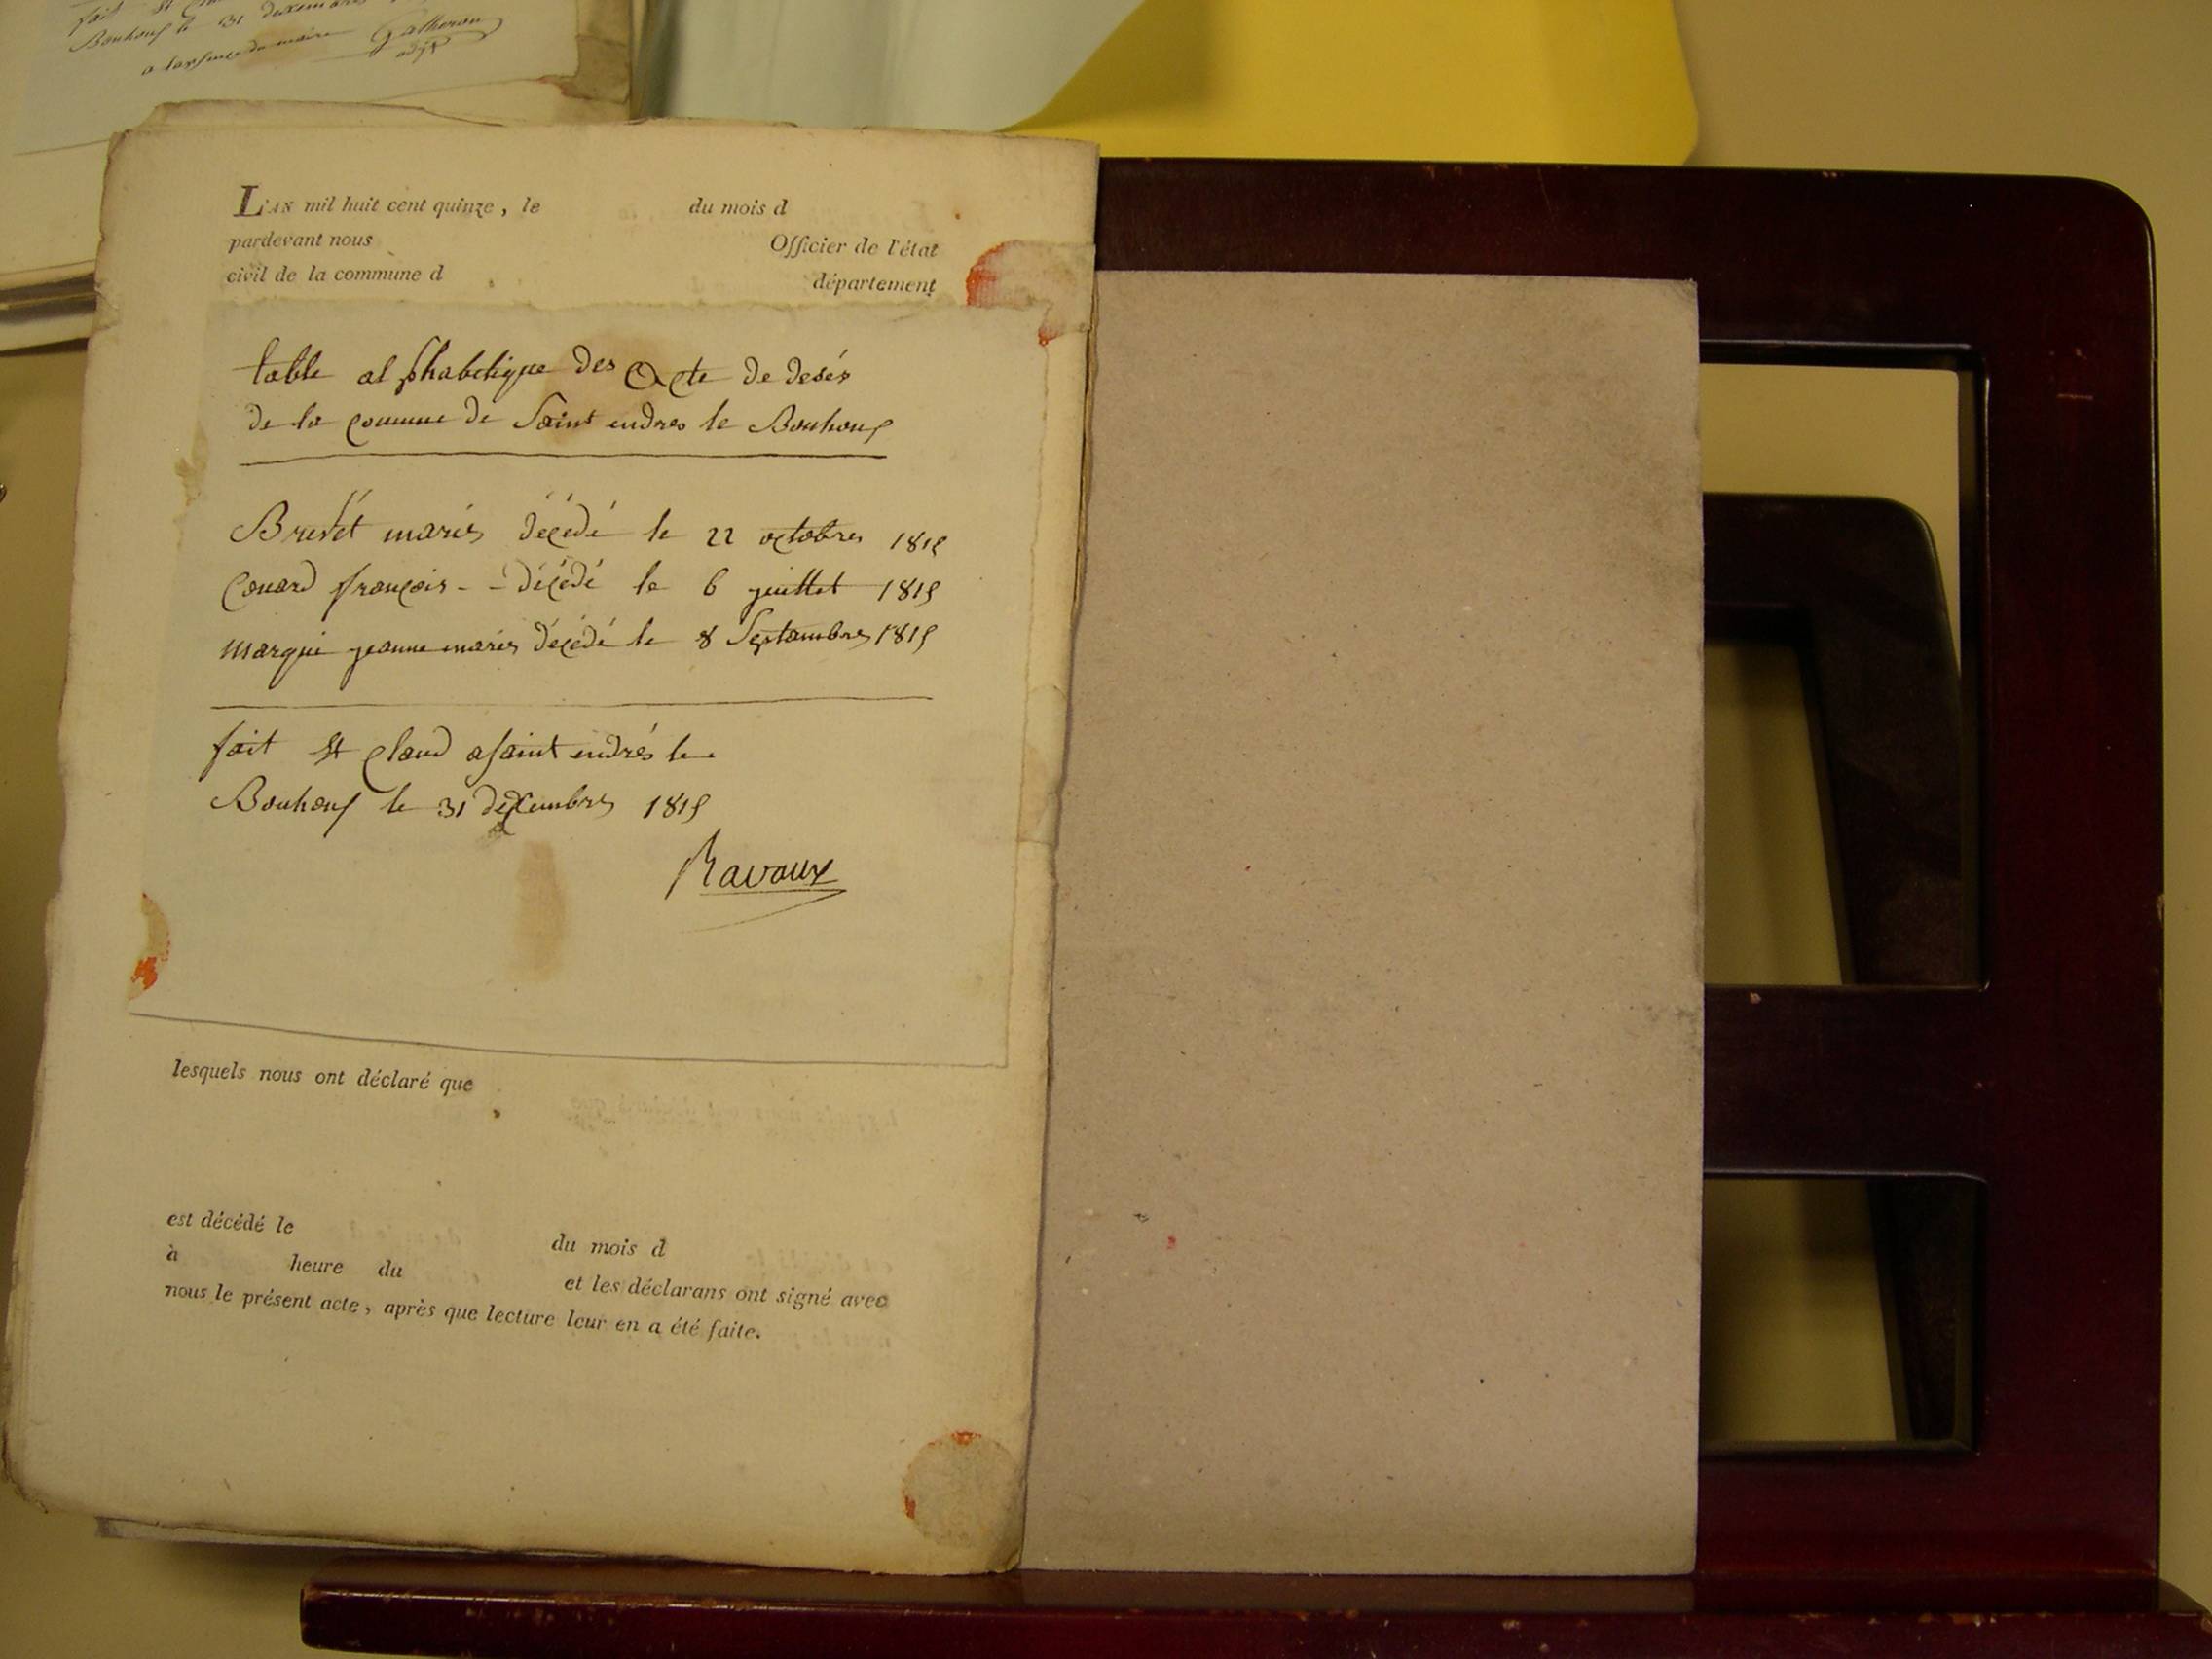 Bouhouf le 31 dexembres
a lapsence du maire Galheron
adjt
L'AN mil huit cent quinze, le du mois d
pardevant nous Officier de l'état
civil de la commune d département
table alphabetique des Acte de desés
de la comune de Saint endres le Bouhouf
Brevet maries décédé le 22 octobres 1815
Couard françois - - décédé le 6 juillet 1815
marqui jeanne maries décédé le 8 Septambres 1815
fait et claud a saint endrés le
Bouhouf le 31 dexembres 1815
Ravaux
lesquels nous ont déclaré que
est décédé le du mois d
à heure du et les déclarans ont signé avec
nous le présent acte, après que lecture leur en a été faite.